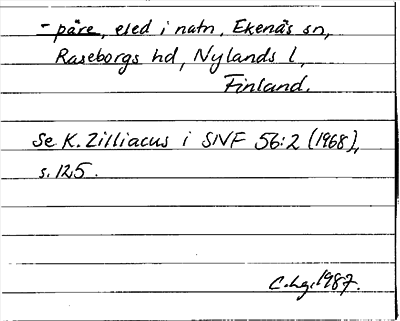 - påre, eled i natn, Ekenäs sn,
Raseborgs hd, Nylands l,
Finland.
Se K. Zilliacus i SNF 56:2 (1968),
s. 125.
C.hg. 1987.